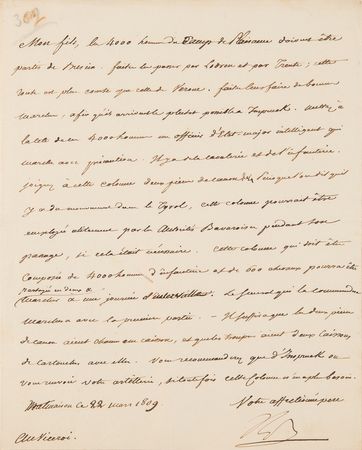 Mon fils, les 4000 hommes du Camp de Plaisance doivent être
partis de Brescia. faites les passer par Lodron et par Trente; cette
route est plus courte que celle de Verone. faites leur faire de bonnes
marches, afin qu'ils arrivent le plutot possible à Inspruck. Mettez à
la tête de ces 4000 hommes un officier d'Etat major intelligent qui
marche avec précaution. Il y a de la cavalerie et de l'infanterie.
joignez à cette colonne deux pieces de canon Puisque l'on dit qu'il
y a du mouvement dans le Tyrol, cette colonne pourrait être
employée utilement par les Autorités Bavaroises pendant son
passage, si cela était nécessaire. Cette colonne qui doit être
composée de 4000 hommes d'infanterie et de 600 chevaux pourra être
partagée en deux et
marcher à une journée d'intervalle. Le Général qui la commandera
marchera avec la première partie. Il suffira que les deux pieces
de canon aient chacune un caisson, et que les troupes aient deux caissons
de cartouches avec elles. Vous recommanderez que d'Inspruck on
vous renvoie votre artillerie, si toutefois cette Colonne n'en a plus besoin.
Malmaison ce 22 mars 1809.
Votre affectionné pere
Au Viceroi.